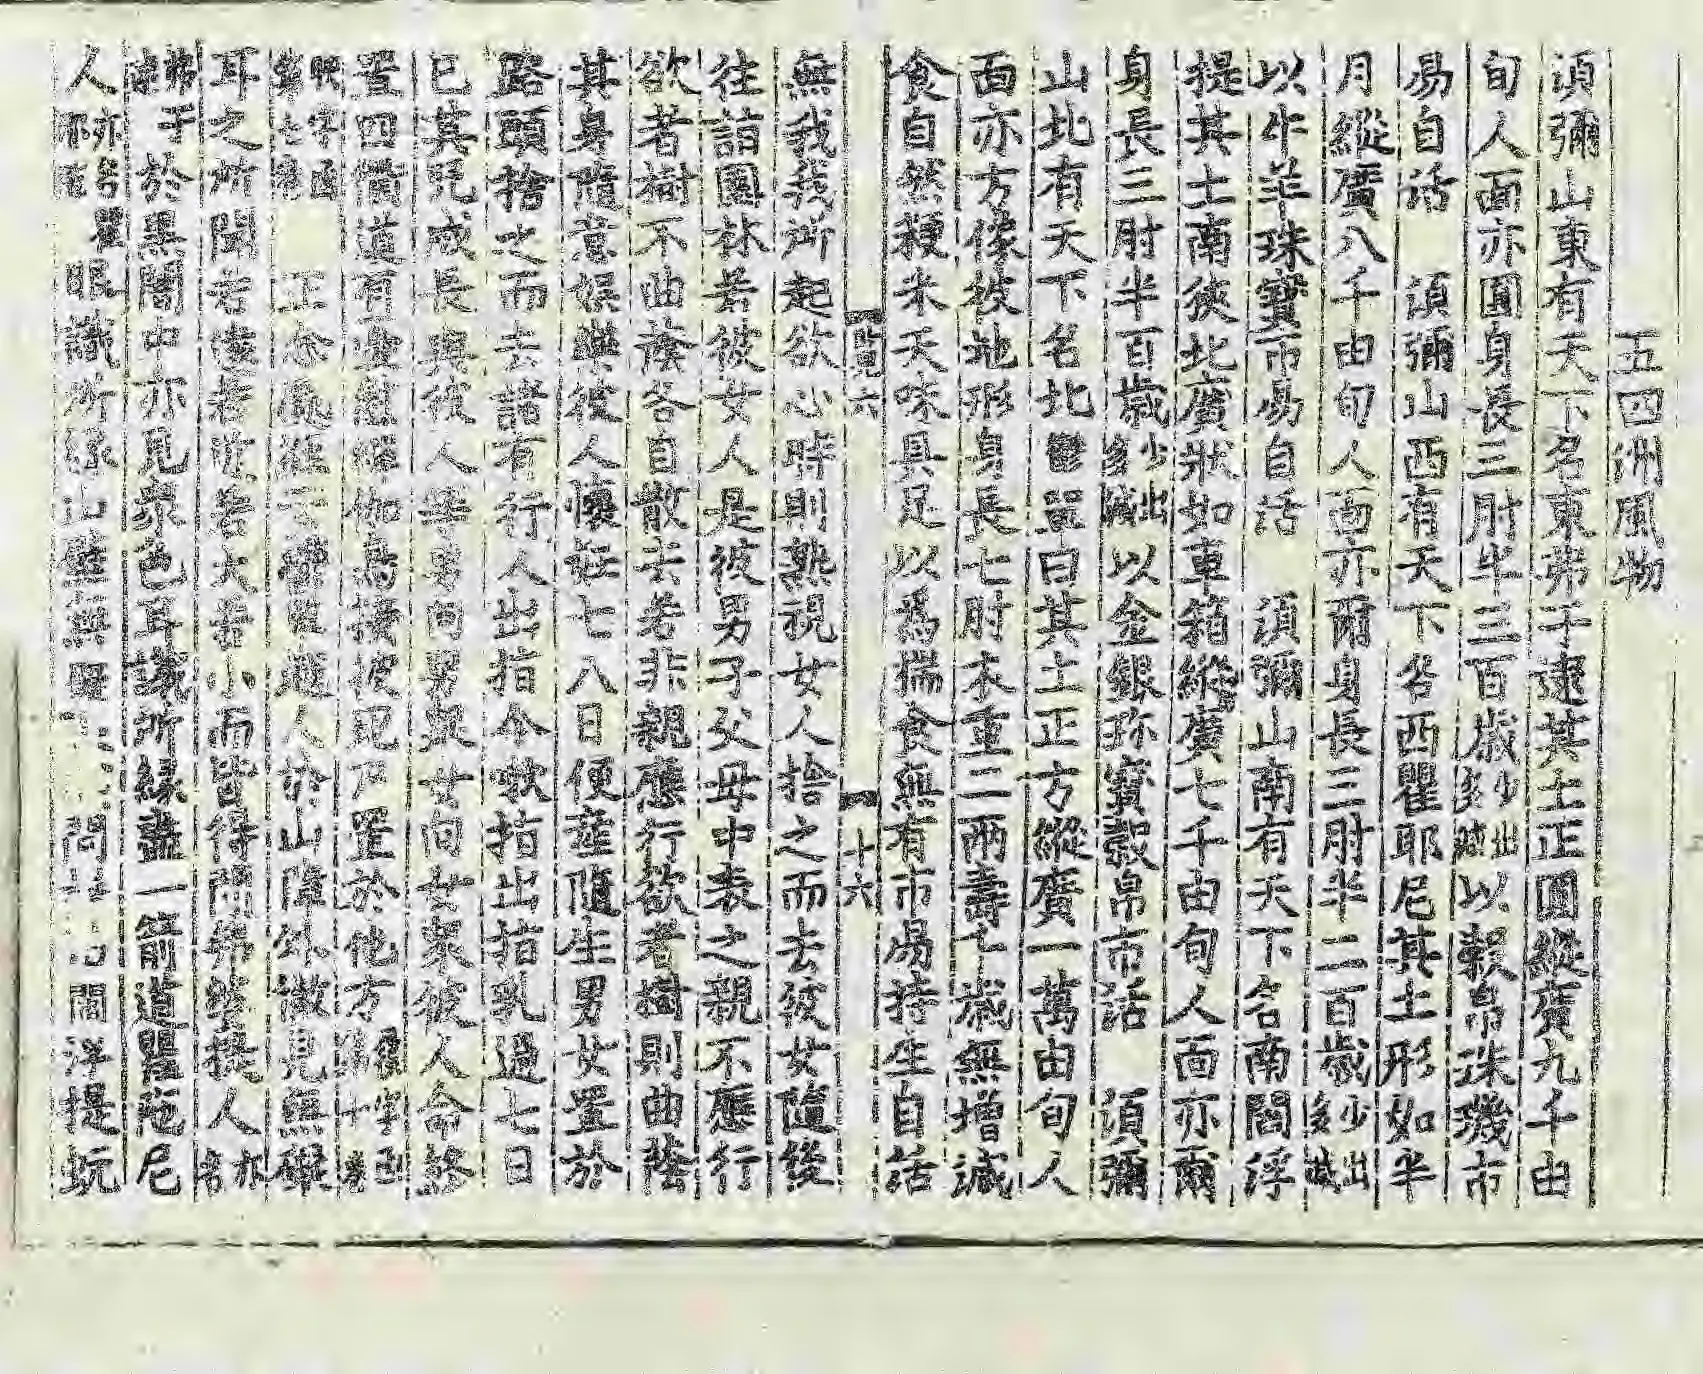 五四洲風物
須彌山東有天下名東弗于逮其土正圓縱廣九千由
旬人面亦圓身長三肘半三百歲多少出減以穀帛珠璣市
易自活　須彌山西有天下名西瞿耶尼其土形如半
月縱廣八千由旬人面亦爾身長三肘半二百歲多少出減
以牛羊珠寶市易自活　須彌山南有天下名南閻浮
提其土南狹北廣狀如車箱縱廣七千由旬人面亦爾
身長三肘半百歲多少出減以金銀珎寶穀帛市活　須彌
山北有天下名北鬱單曰其土正方縱廣一萬由旬人
面亦方像彼地形身長七肘衣重二兩壽千歲無增減
食自然粳米天味具足以爲揣食無有市易持生自活
六　十六
無我我所起欲心時則熟視女人捨之而去彼女隨後
往詣園林若彼女人是彼男子父母中表之親不應行
欲者樹不曲蔭各自散去若非親應行欲者樹則曲蔭
其身隨意娛樂彼人懷妊七八日便産隨生男女置於
路頭捨之而去諸有行人出指令嗽指出指乳過七日
已其兒成長與彼人等男向男衆女向女衆彼人命終
置四衢道有鳥接彼死尸置於他方
正念經云　人於山障外徹見無礙
耳之所聞若遠若近若大若小而皆得聞弗婆提人亦
弗于　於黑闇中亦見衆色耳識所緣盡一箭道瞿陁尼
人亦名瞿　眼識所緣山壁無　閻浮提